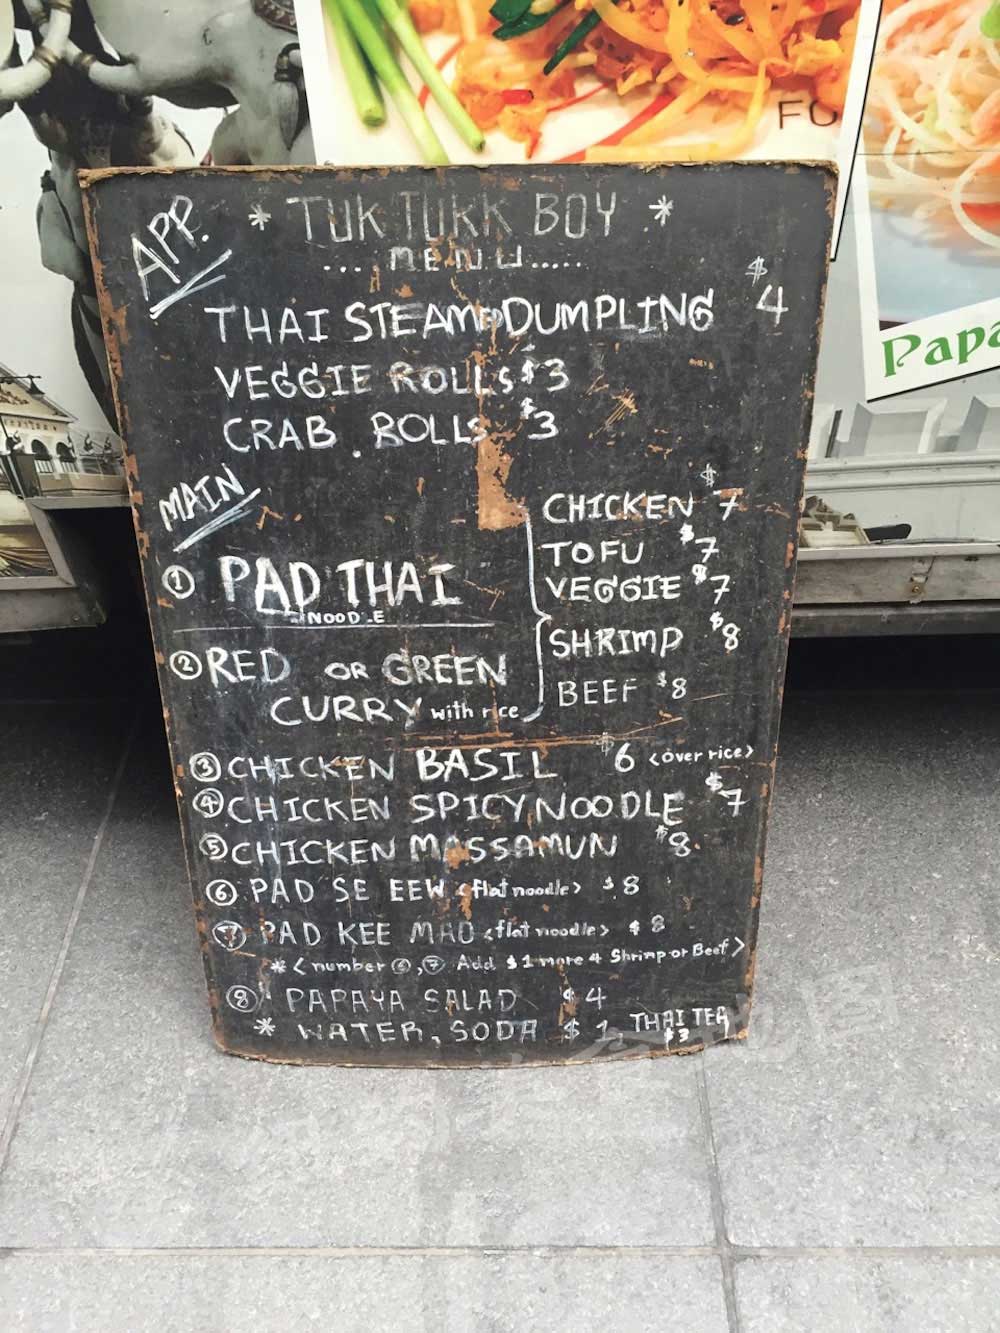 FO
Papa
APP.
* TUK TUKK BOY *
.... MENU.....
THAI STEAM DUMPLING $4
VEGGIE ROLLS $3
CRAB ROLLS $3
MAIN
① PAD THAI
NOODLE
② RED OR GREEN
CURRY with rice
CHICKEN $7
TOFU $7
VEGGIE $7
SHRIMP $8
BEEF $8
③ CHICKEN BASIL $6 <over rice>
④ CHICKEN SPICY NOODLE $7
⑤ CHICKEN MASSAMUN $8
⑥ PAD SE EEW <flat noodle> $8
⑦ PAD KEE MAO <flat noodle> $8
* <number ⑥,⑦ Add $1 more 4 Shrimp or Beef>
⑧ PAPAYA SALAD $4
* WATER, SODA $1, THAI TEA $3